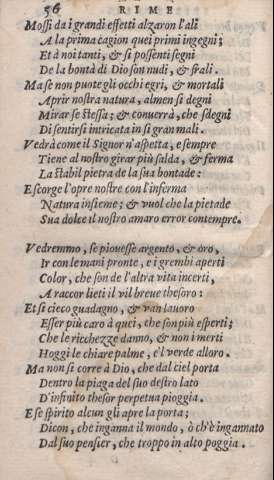 56 RIME
Mossi da i grandi effetti alzaron l'ali
A la prima cagion quei primi ingegni;
Et à noi tanti, & sì possenti segni
De la bontà di Dio son nudi, & frali.
Ma se non puote gli occhi egri, & mortali
Aprir nostra natura, almen si degni
Mirar se stessa; & converrà, che sdegni
Di sentirsi intricata in si gran mali.
Vedrà come il Signor n'aspetta, e sempre
Tiene al nostro girar più salda, & ferma
La stabil pietra de la sua bontade:
E scorge l'opre nostre con l'inferma
Natura insieme; & vuol che la pietade
Sua dolce il nostro amaro error contempre.
Vedremmo, se piovesse argento, & oro,
Ir con le mani pronte, e i grembi aperti
Color, che son de l'altra vita incerti,
A raccor lieti il vil breve thesoro:
Et si cieco guadagno, & van lavoro
Esser più caro à quei, che son più esperti;
Che le ricchezze danno, & non i merti
Hoggi le chiare palme, e'l verde alloro.
Ma non si corre à Dio, che dal ciel porta
Dentro la piaga del suo destro lato
D'infinito thesor perpetua pioggia.
E se spirto alcun gli apre la porta;
Dicon, che inganna il mondo, ò ch'è ingannato
Dal suo pensier, che troppo in alto poggia.